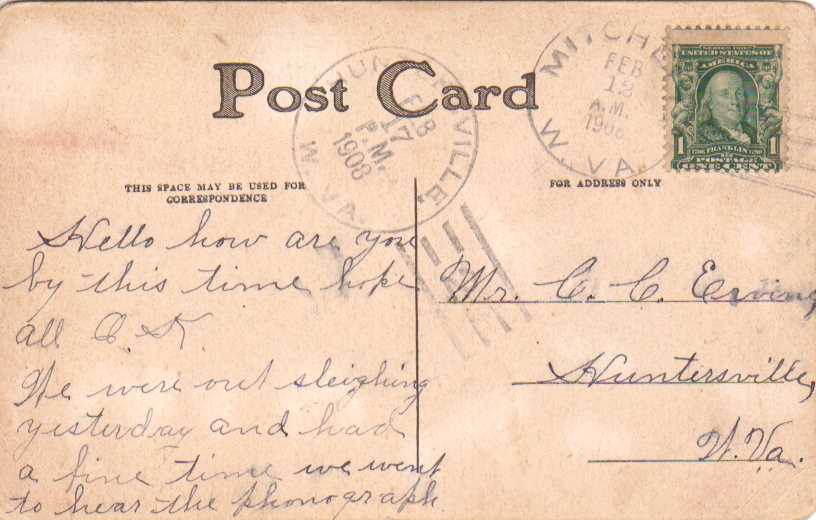 Post Card
HUNTERSVILLE,
FEB
17
P.M.
1908
W. VA.
FEB
12
A.M.
1908
W. VA.
SERIES 1902
UNITED STATES OF
AMERICA
1706 FRANKLIN 1790
1 1
POSTAGE
ONE CENT
THIS SPACE MAY BE USED FOR
CORRESPONDENCE
FOR ADDRESS ONLY
Hello how are you
by this time hope
all O. K
We were out sleighing
yesterday and had
a fine time we went
to hear the phonograph.
Mr. C. C. Ervine
Huntersville,
W. Va.